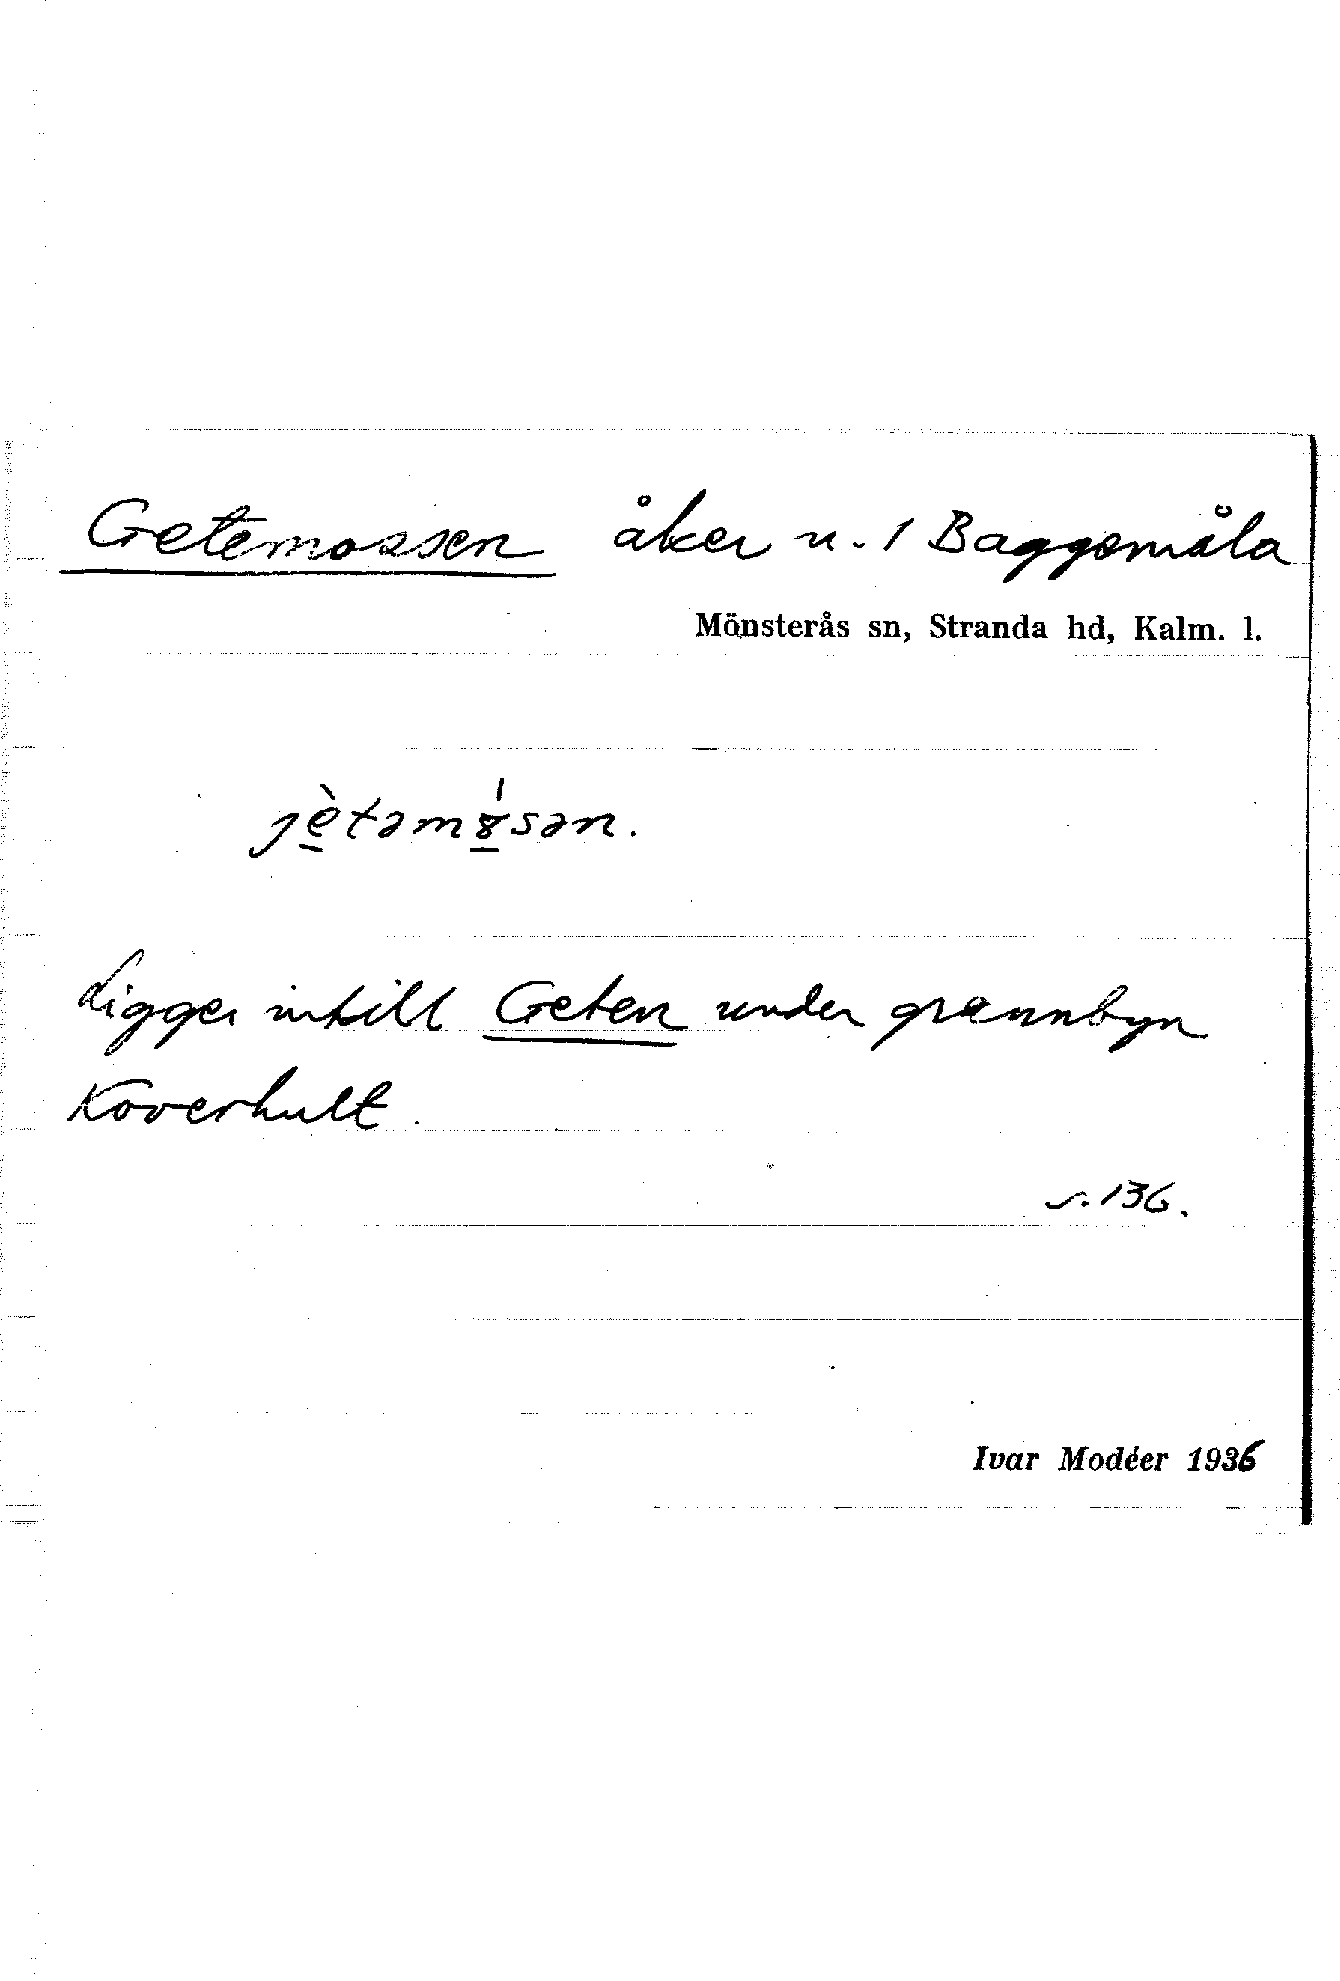 Getemossen åker u. 1 Baggemåla
Mönsterås sn, Stranda hd, Kalm. l.
jè̠təm8̠́sən.
Ligger intill Geten under grannbyn
Koverhult.
s. 136.
Ivar Modéer 1936